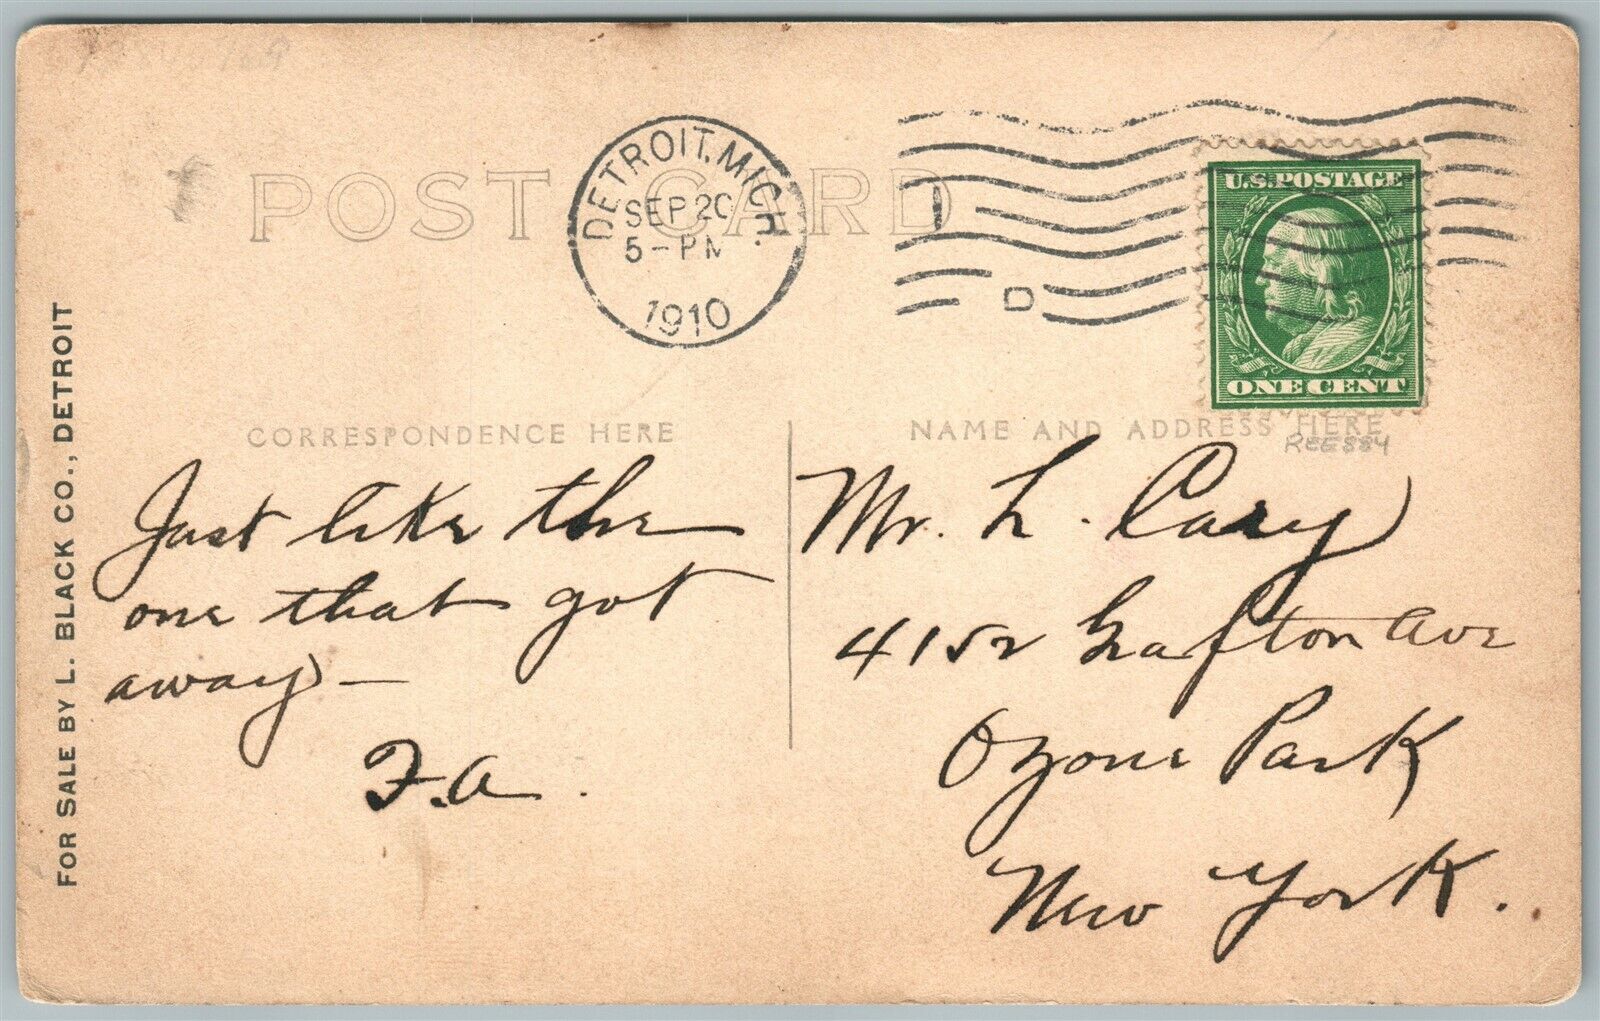 POST CARD
DETROIT, MICH.
SEP 20
5 - PM
1910
D
U.S. POSTAGE
ONE CENT
CORRESPONDENCE HERE
NAME AND ADDRESS HERE
REE884
Just like the
one that got
away —
F.A.
Mr. L. Cary
4152 Grafton Ave
Ozone Park
New York.
FOR SALE BY L. BLACK CO., DETROIT